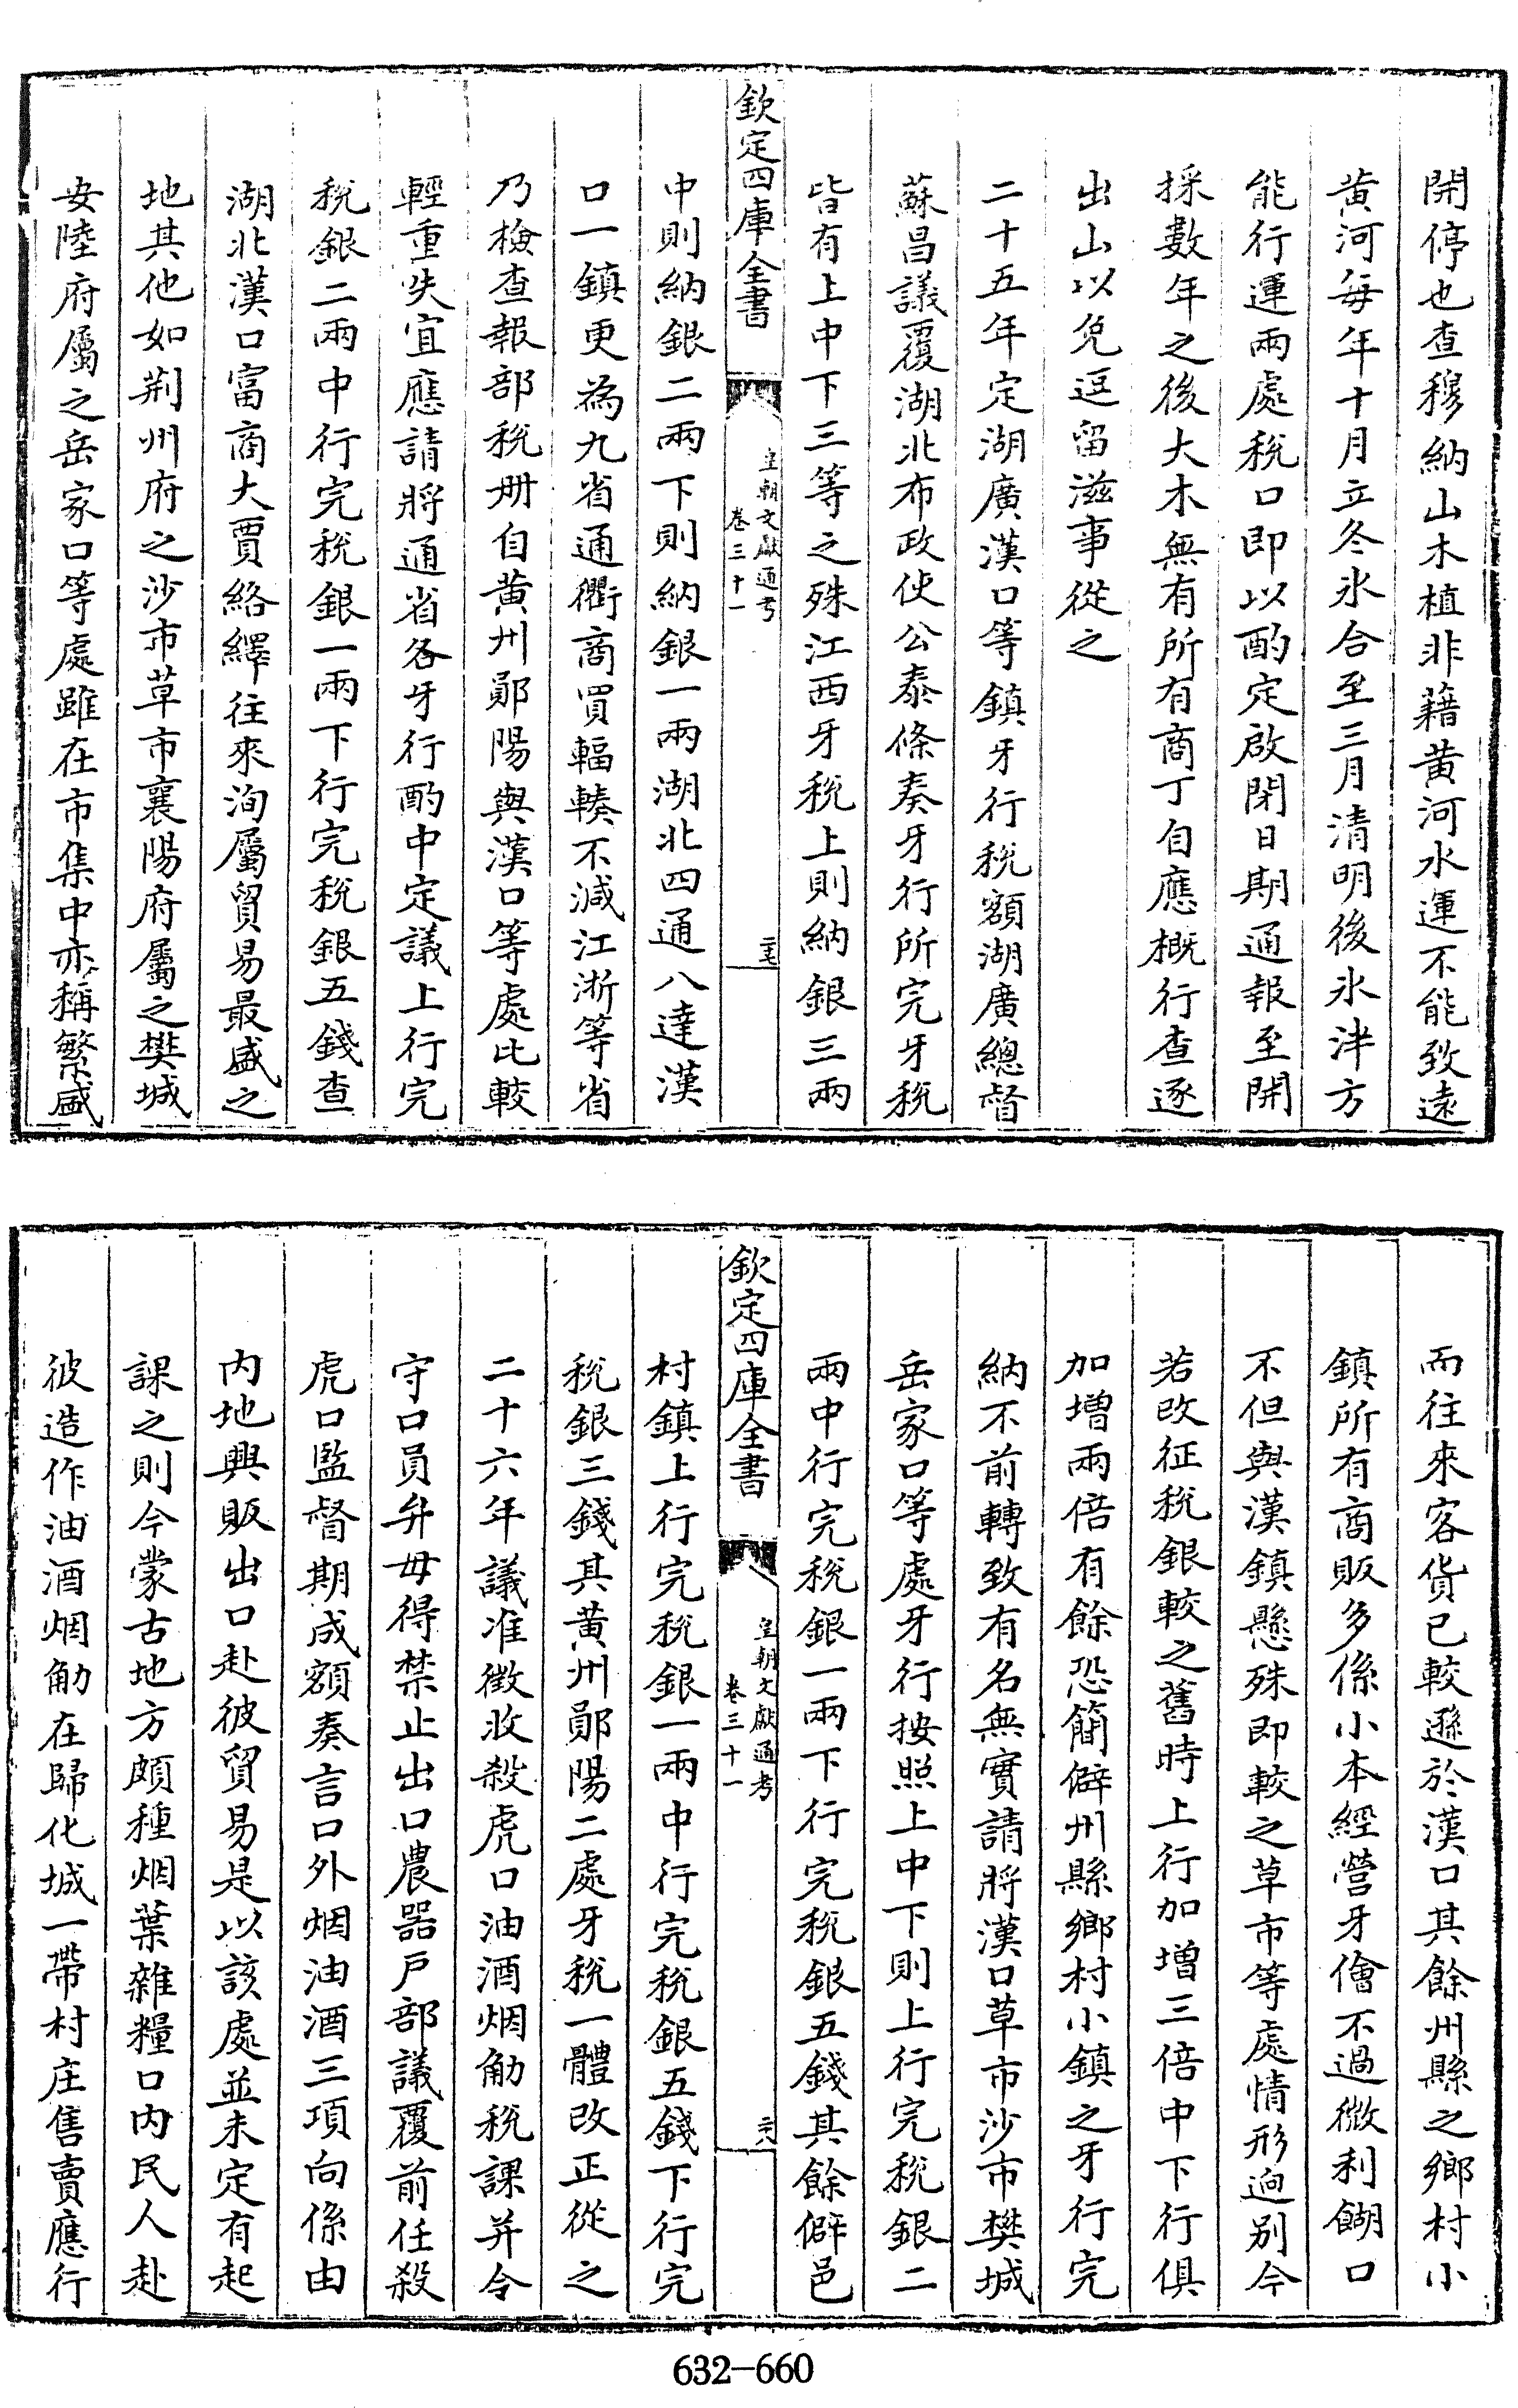 開停也查穆納山木植非藉黄河水運不能致遠
黄河每年十月立冬氷合至三月清明後氷泮方
能行運兩處税口即以酌定啟閉日期通報至開
採數年之後大木無有所有商丁自應概行查逐
出山以免逗留滋事從之
二十五年定湖廣漢口等鎮牙行税額湖廣總督
蘇昌議覆湖北布政使公泰條奏牙行所完牙税
皆有上中下三等之殊江西牙税上則納銀三兩
欽定四庫全書
皇朝文獻通考
卷三十一
二十七
中則納銀二兩下則納銀一兩湖北四通八達漢
口一鎮更為九省通衢商買輻輳不減江淅等省
乃檢查報部税冊自黄州鄖陽與漢口等處比較
輕重失宜應請將通省各牙行酌中定議上行完
税銀二兩中行完税銀一兩下行完税銀五錢查
湖北漢口富商大賈絡繹往來洵屬貿易最盛之
地其他如荆州府之沙市草市襄陽府屬之樊城
安陸府屬之岳家口等處雖在市集中亦稱繁盛
而往來客貨已較遜於漢口其餘州縣之鄉村小
鎮所有商販多係小本經營牙儈不過微利餬口
不但與漢鎮懸殊即較之草市等處情形逈别今
若改征税銀較之舊時上行加增三倍中下行俱
加增兩倍有餘恐簡僻州縣鄉村小鎮之牙行完
納不前轉致有名無實請將漢口草市沙市樊城
岳家口等處牙行按照上中下則上行完税銀二
兩中行完税銀一兩下行完税銀五錢其餘僻邑
欽定四庫全書
皇朝文獻通考
卷三十一
二十八
村鎮上行完税銀一兩中行完税銀五錢下行完
税銀三錢其黄州鄖陽二處牙税一體改正從之
二十六年議准徵收殺虎口油酒烟觔税課并令
守口員弁毋得禁止出口農器户部議覆前任殺
虎口監督期成額奏言口外烟油酒三項向係由
内地興販出口赴彼貿易是以該處並未定有起
課之則今蒙古地方頗種烟葉雜糧口内民人赴
彼造作油酒烟觔在歸化城一帶村庄售賣應行
632-660